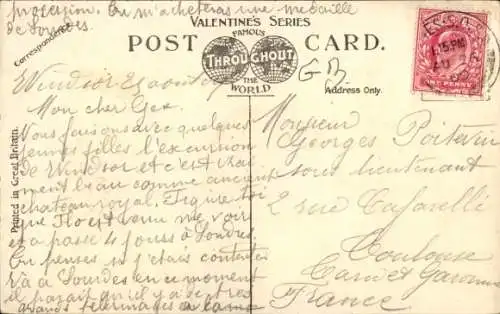 procession. Tu m'achèteras une médaille
de Lourdes
VALENTINE'S SERIES
FAMOUS
THROUGHOUT
THE
WORLD
POST CARD.
Correspondence
Address Only.
GB
Printed in Great Britain.
1.15 PM
ONE PENNY
Windsor 2 août
Mon cher Geo
Nous faisons avec quelques
jeunes filles l'excursion
de Windsor et c'est vrai
ment beau comme ancien
château royal. Figure toi
que est venu me voir
et a passé 4 jours à Londres.
Tu penses si j'étais contente
à Lourdes en ce moment
il paraît qu'il y a de très
grands pèlerinages
Monsieur
Georges Poitevin
sous lieutenant
2 rue Caffarelli
Toulouse
Garonne
France